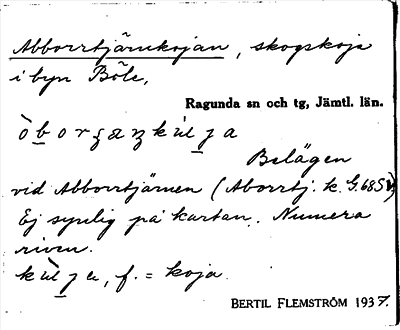 Abborrtjärnkojan, skogskoja
i byn Böle,
Ragunda sn och tg, Jämtl. län.
Belägen
vid Abborrtjärnen (Aborrtj. k. G. 68 S V)
Ej synlig på kartan. Numera
riven.
f. = koja.
BERTIL FLEMSTRÖM 1937.